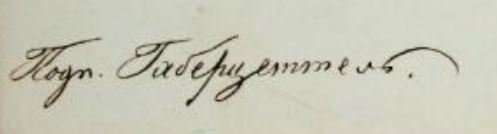 Подп. Габерцеттель.